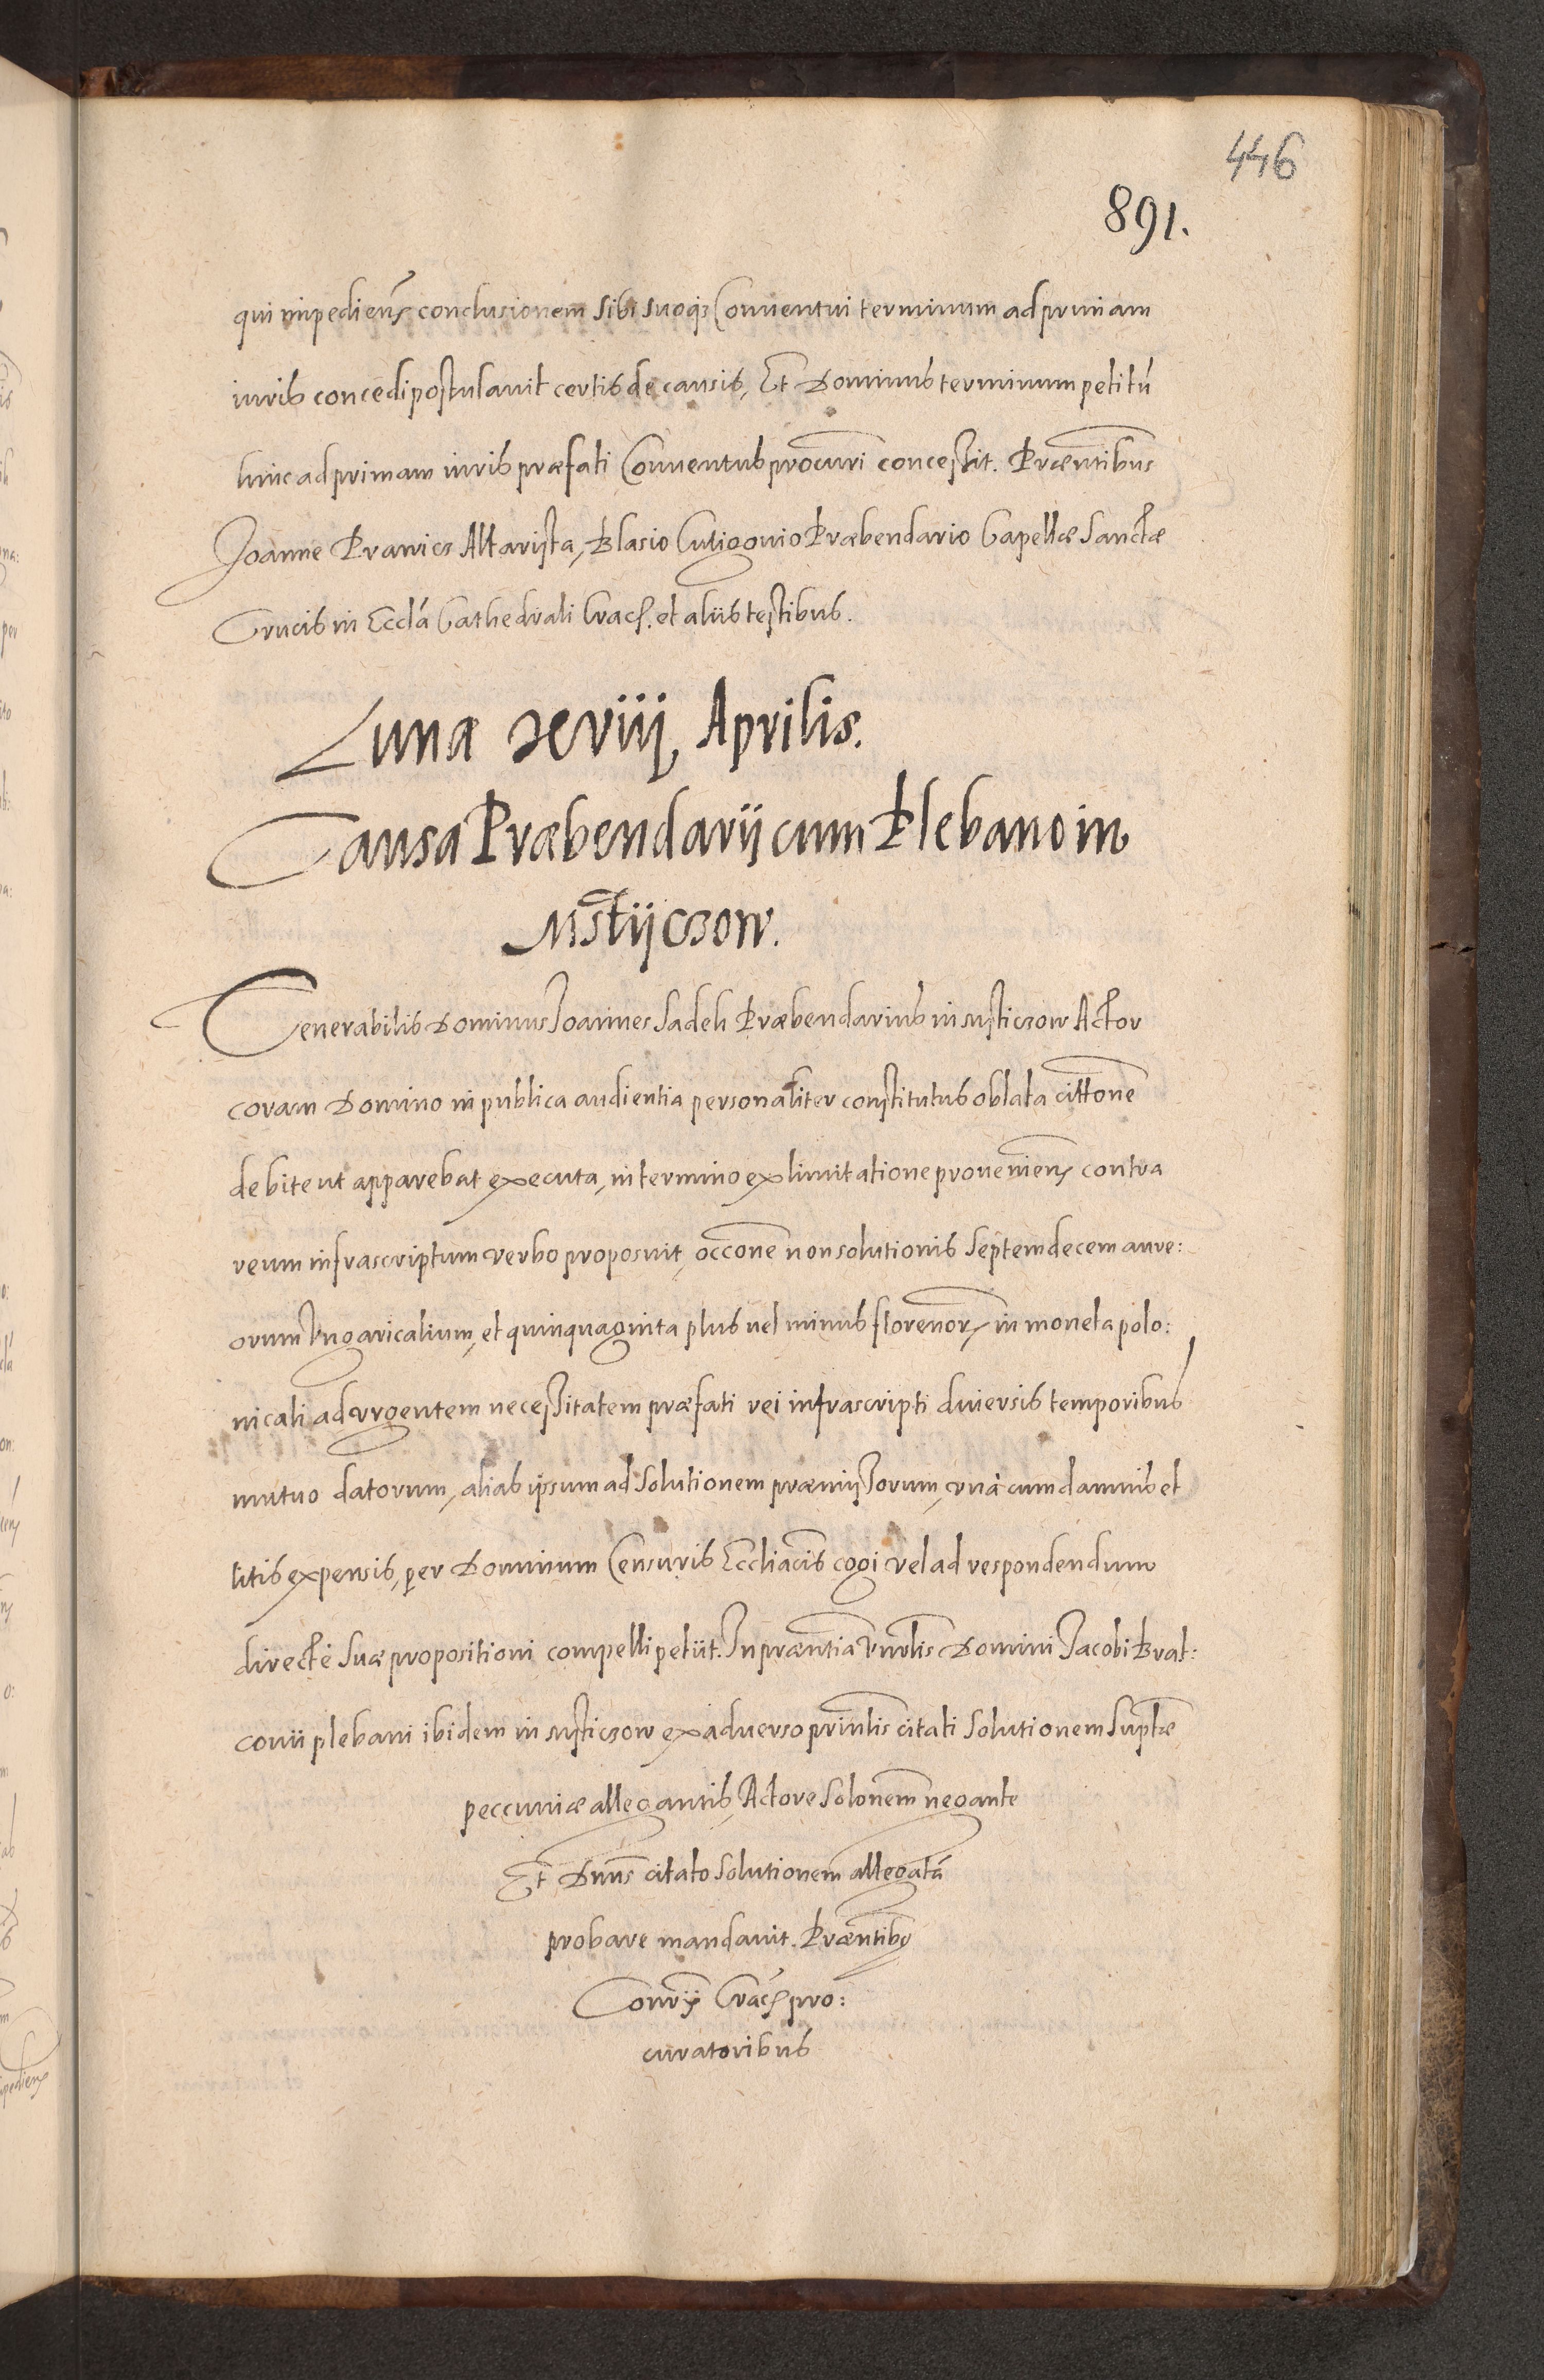 446
891.
qui impediens conclusionem sibi suoq3 Conuentui terminum ad primam
iuris concedi postulauit certis de causis, Et Dominus terminum petitū
huic ad primam iuris præfati Conuentus procuri concessit. Præntibus
Joanne Pranicz Altarista, Blasio Cutigonio Præbendario Capellæ Sanctæ
Crucis in Ecclā Cathedrali Crac. et aliis testibus.
Lunæ xviij, Aprilis.
Causa Præbendarij cum Plebano in
Mstijczow.
Venerabilis Dominus Joannes Sadek Præbendarius in Msticzow Actor
coram Domino in publica audientia personaliter constitutus oblata cittone
debite ut apparebat executa, in termino ex limitatione proueniens contra
reum infrascriptum verbo proposuit, occone non solutionis Septemdecem aure:
orum Vngaricalium, et quinquaginta plus uel minus florenor, in moneta polo:
nicali ad vrgentem necessitatem præfati rei infrascripti diuersis temporibus
mutuo datorum, alias ipsum ad solutionem præmissorum, vnà cum damnis et
litis expensis, per Dominum Censuris Eccliacis cogi vel ad respondendum
directè suæ propositioni compelli petiit. In præntia Vnrlis Domini Jacobi Brat:
conii plebani ibidem in Msticzow ex aduerso prinlis citati solutionem suptæ
peccuniæ allegantis, Actore solonem negante
Et Dnus citato solutionem allegatā
probare mandauit. Præntibus
Conrij Crac pro:
curatoribus